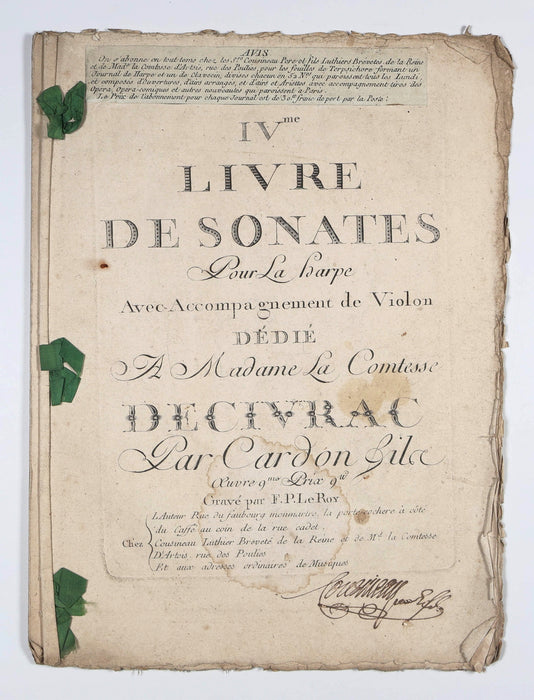 AVIS
On s'abonne en tout tems chez les Srs. Cousineau Pere et fils Luthiers Brevetés de la Reine
et de Made. la Comtesse d'Artois, rue des Poulies, pour les feuilles de Terpsichore, formant un
Journal de Harpe et un de Clavecin, divisés chacun en 52 Nos. qui paroissent tous les Lundi,
et composés d'Ouvertures, d'airs arrangés, et d'airs et Ariettes avec accompagnement tirés des
Opera, Opera-comiques et autres nouveautés qui paroissent à Paris.
Le Prix de l'abonnement pour chaque Journal est de 30 franc de port par la Poste.
IVme
LIVRE
DE SONATES
Pour La harpe
Avec Accompagnement de Violon
DÉDIÉ
A Madame La Comtesse
DE CIVRAC
Par Cardon fils
Œuvre 9me Prix 9
Gravé par F. P. Le Roy
L'Auteur Rue du faubourg monmartre, la porte cochere à côté
du Caffé au coin de la rue cadet.
Chez Cousineau Luthier Breveté de la Reine et de Me. la Comtesse
D'Artois, rue des Poulies
Et aux adresses ordinaires de Musiques
Cousineau